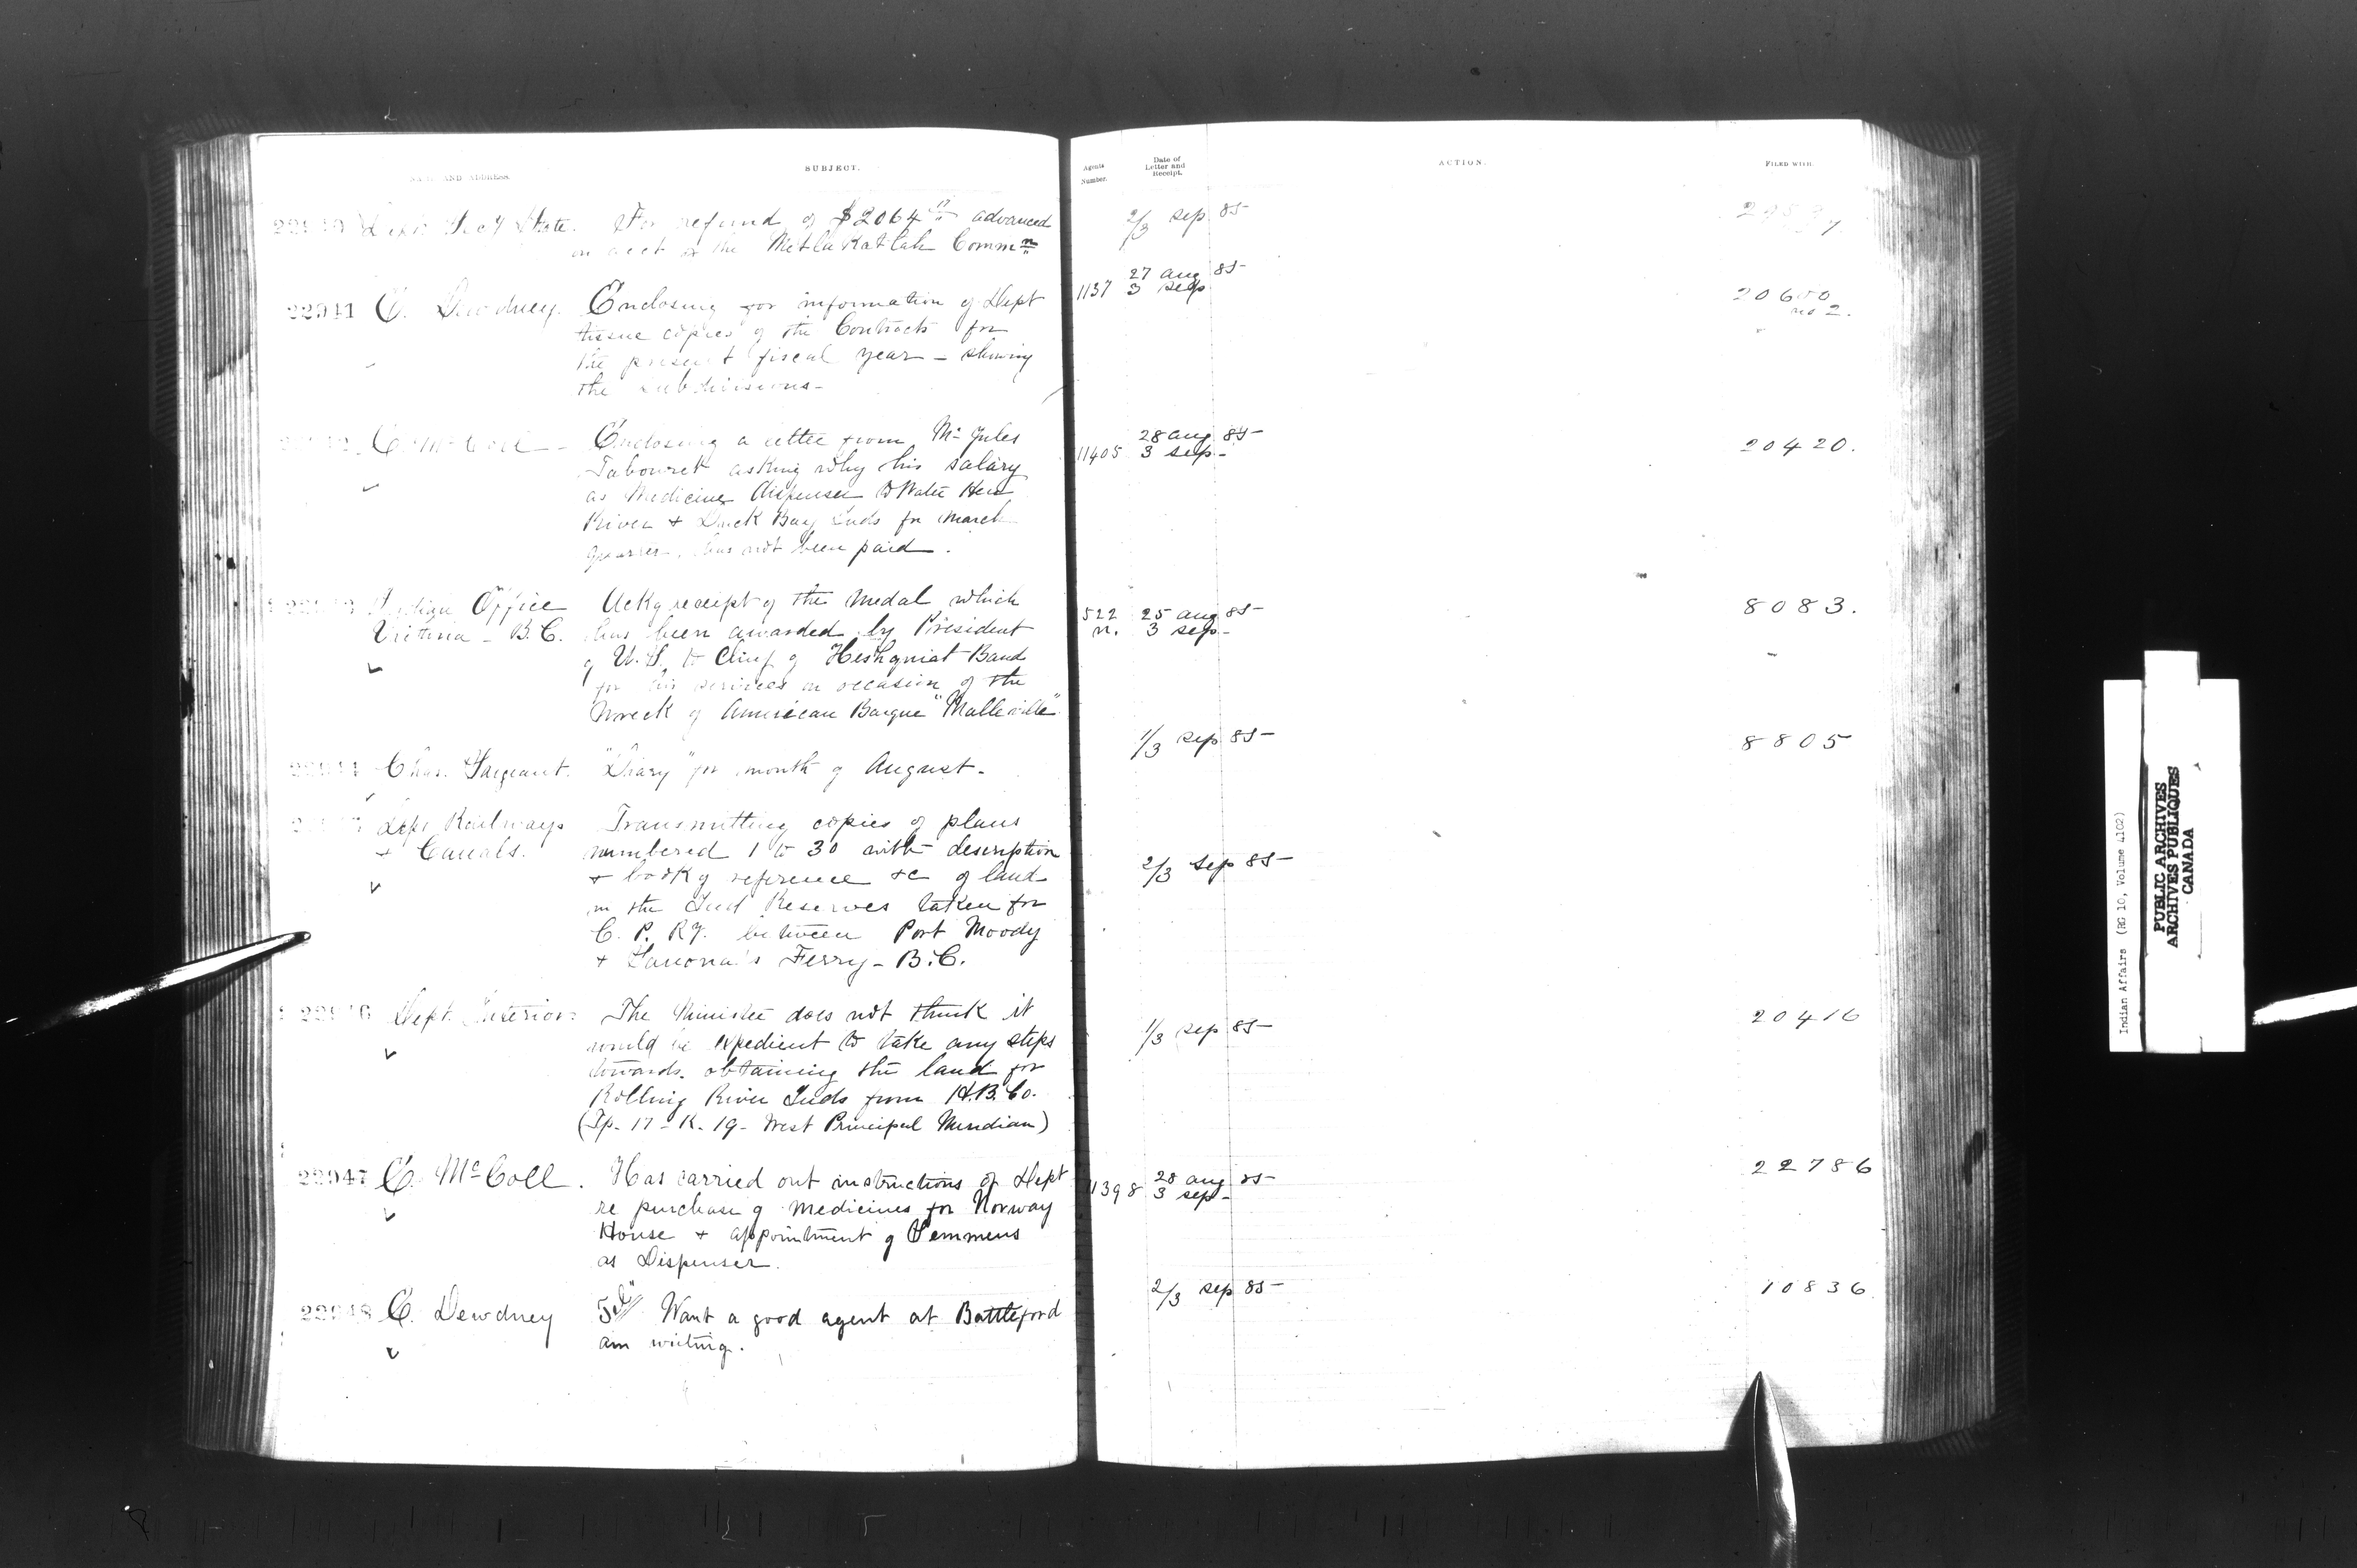 NAME AND ADDRESS.
SUBJECT.
Agents Number.
Date of Letter and Receipt.
ACTION.
FILED WITH.
State. For refund of $2064 advanced
on acct of the Metlakatlah Commn
2/3 sep 85
22941 E. Dewdney. Enclosing for information of Dept
tissue copies of the Contracts for
the present fiscal year - showing
the subdivisions -
1137 27 aug 85
3 sep
20600
no 2.
E. McColl - Enclosing a letter from Mr Jules
Tabouret asking why his salary
as Medicine dispenser to Water Hen
River + Duck Bay Inds for March
quarter, has not been paid.
11405 28 aug 85
3 sep -
20420.
Indian Office Ackg receipt of the medal which
Victoria - B.C. has been awarded by President
of U.S. to Chief of Heshquiat Band
for his services on occasion of the
Wreck of American Barque "Malleville"
522 25 aug 85
n. 3 sep -
8083.
Chas. Sargeant. "Diary" for month of August -
1/3 sep 85
8805
Dept Railways Transmitting copies of plans
+ Canals. numbered 1 to 30 with description
+ book of reference &c of land
in the Ind Reserves taken for
C. P. Ry. between Port Moody
+ Savona's Ferry - B.C.
2/3 sep 85
22946 Dept. Interior The Minister does not think it
would be expedient to take any steps
towards obtaining the land for
Rolling River Inds from H.B. Co.
(Tp. 17 - R. 19 - West Principal Meridian)
1/3 sep 85
20416
22947 E. McColl. Has carried out instructions of Dept
re purchase of medicines for Norway
House + appointment of Semmens
as Dispenser.
11398 28 aug 85
3 sep -
22786
22948 E. Dewdney Tel Want a good agent at Battleford
am writing.
2/3 sep 85
10836
Indian Affairs (RG 10, Volume 4102)
PUBLIC ARCHIVES
ARCHIVES PUBLIQUES
CANADA